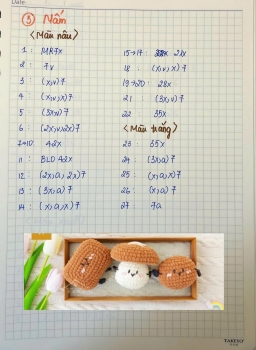 Date
③ Nấm
<Màu nâu>
1 : MR7x
2 : 7v
3 : (x,v)7
4 : (x,v,x)7
5 : (3x,v)7
6 : (2x,v,2x)7
7→10: 42x
11 : BLO 42x
12 : (2x,a,2x)7
13 : (3x,a)7
14 : (x,a,x)7
15→17 : 21x
18 : (x,v,x)7
19→20 : 28x
21 : (3x,v)7
22 : 35x
<Màu trắng>
23 : 35x
24 : (3x,a)7
25 : (x,a,x)7
26 : (x,a)7
27 : 7a
TAKESLY